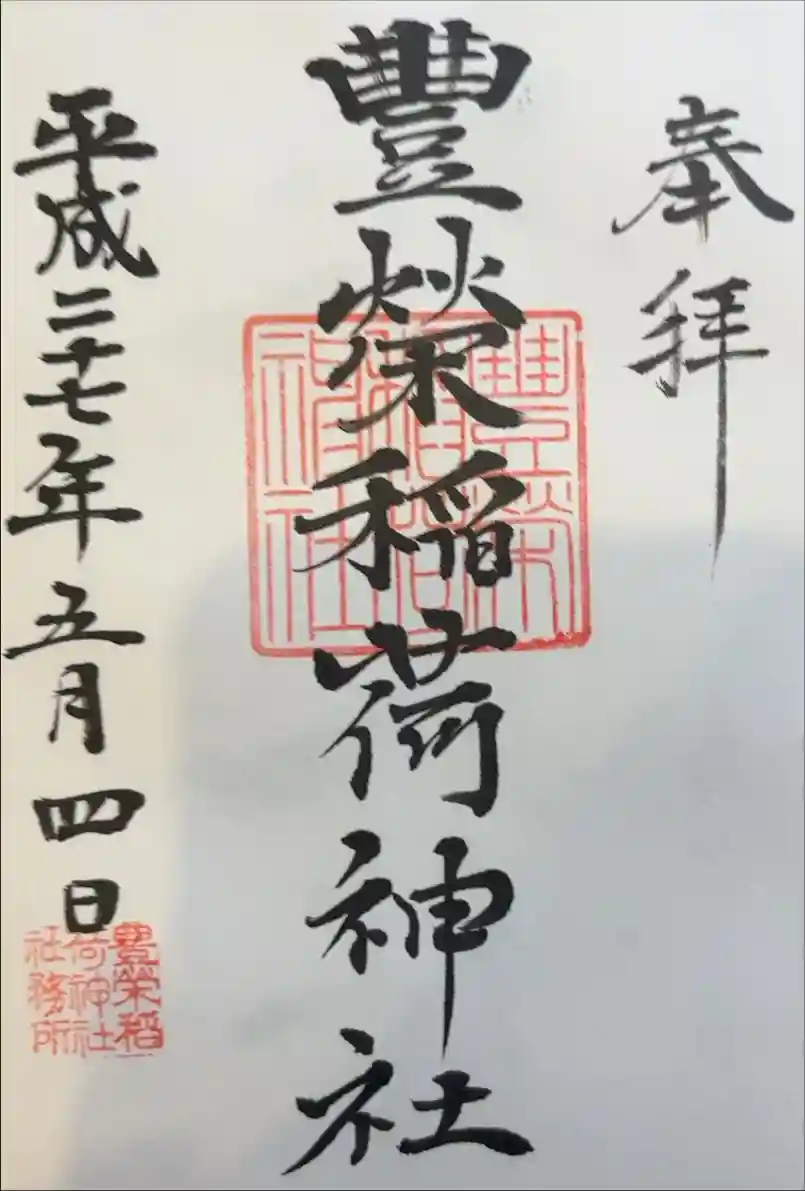 奉拝
豐榮稲荷神社
平成二十七年五月四日
豐榮
稲荷
神社
豊栄稲
荷神社
社務所